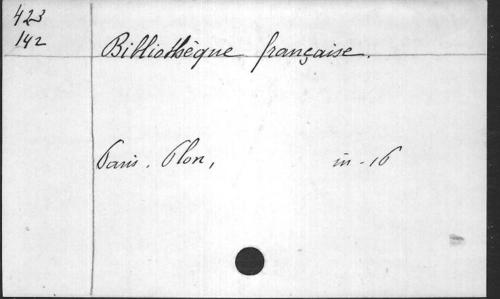 423
142
Bibliothèque française.
Paris. Plon, in-16